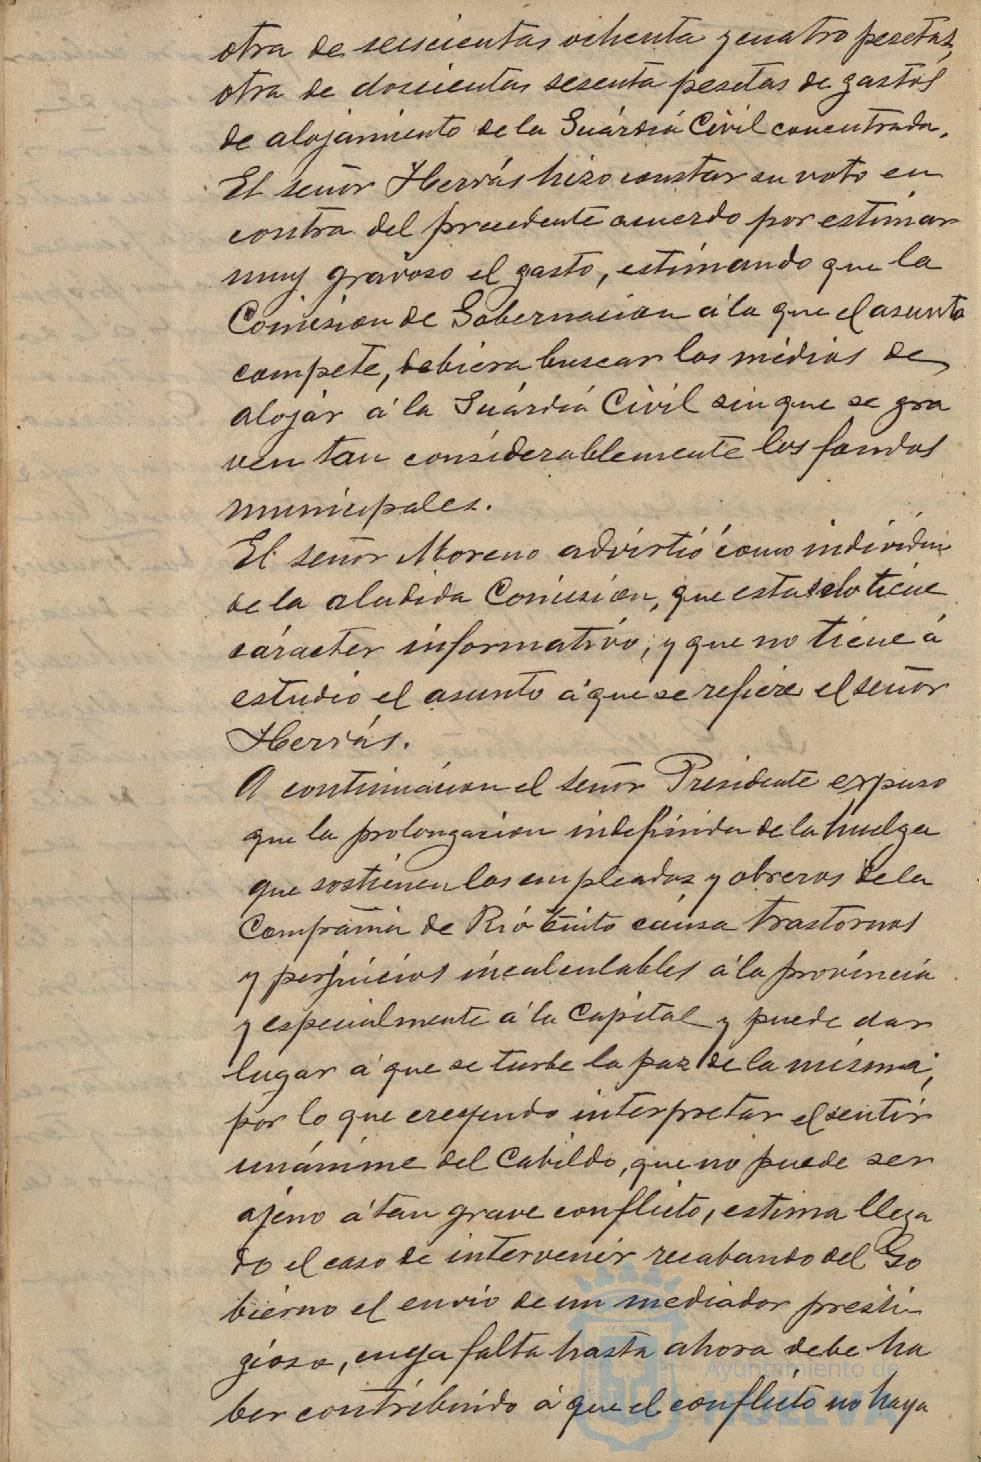 otra de seiscientas ochenta y cuatro pesetas,
otra de doscientas sesenta pesetas de gastos
de alojamiento de la Guardia Civil concentrada.
El señor Herrás hizo constar su voto en
contra del precedente acuerdo por estimar
muy gravoso el gasto, estimando que la
Comision de Gobernacion á la que el asunto
compete, debiera buscar los medios de
alojar á la Guardia Civil sin que se gra
ven tan considerablemente los fondos
municipales.
El señor Moreno advirtió como individuo
de la aludida Comision, que esta solo tiene
carácter informativo, y que no tiene á
estudio el asunto á que se refiere el señor
Herrás.
A continuacion el señor Presidente expuso
que la prolongacion indefinida de la huelga
que sostienen los empleados y obreros de la
Compañia de Rio Tinto causa trastornos
y perjuicios incalculables á la provincia
y especialmente á la Capital y puede dar
lugar á que se turbe la paz de la misma;
por lo que creyendo interpretar el sentir
unánime del Cabildo, que no puede ser
ajeno á tan grave conflicto, estima llega
do el caso de intervenir recabando del Go
bierno el envio de un mediador presti
gioso, cuya falta hasta ahora debe ha
ber contribuido á que el conflicto no haya
Ayuntamiento de
HUELVA